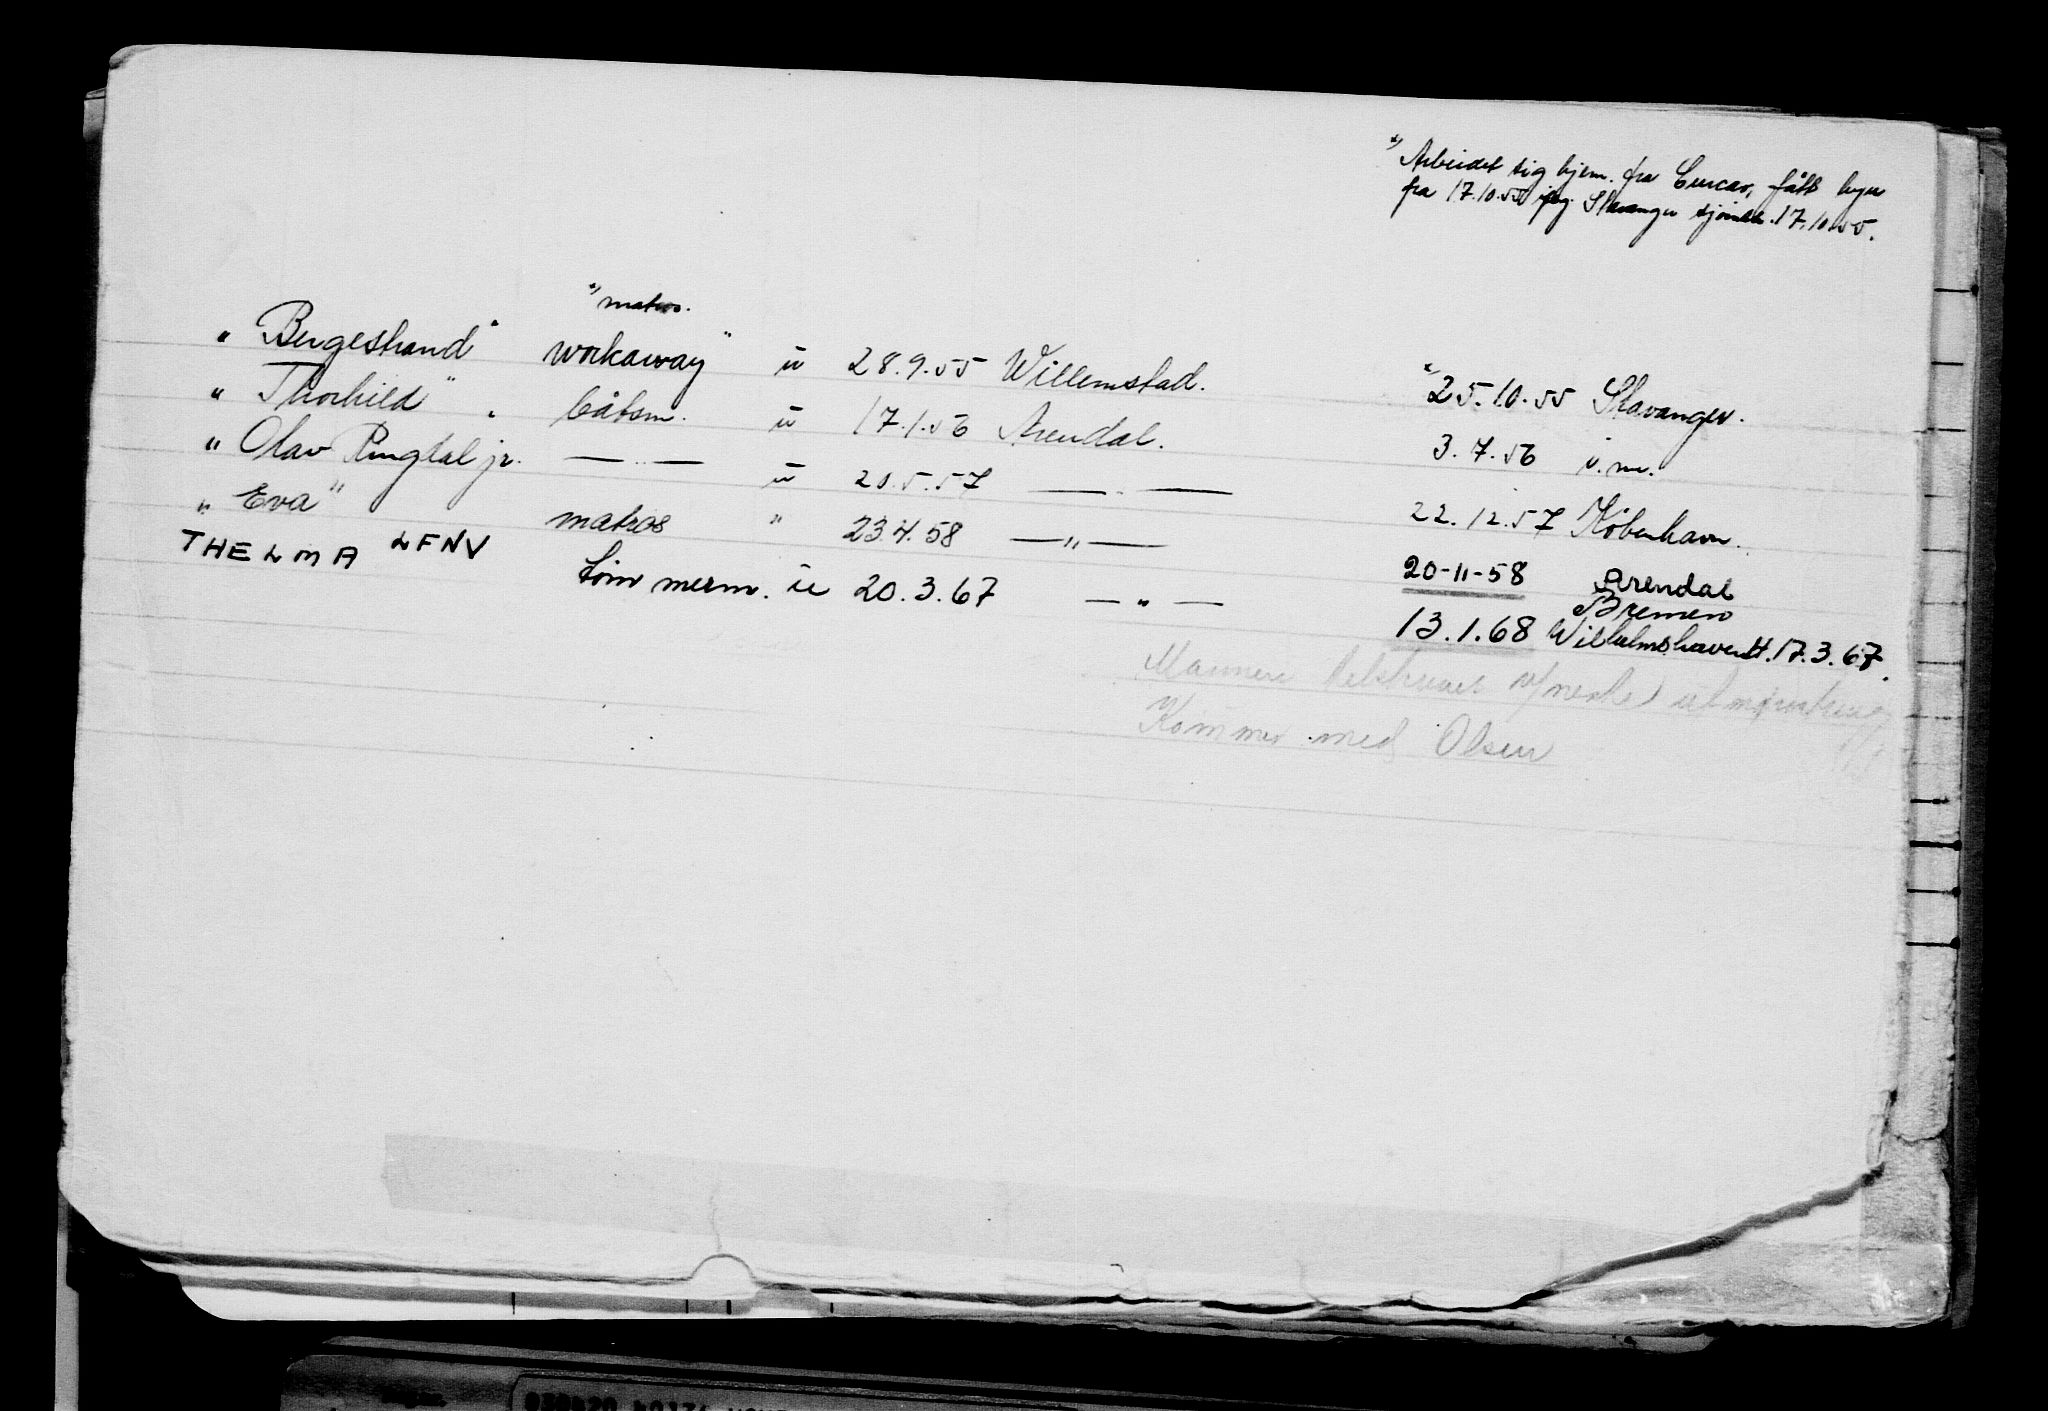 x) Arbeidet sig hjem. fra Curcao, fått hyre
fra 17.10.55 Stavanger sjømk. 17.10.55.
x) matros.
" Bergestrand" workaway" u 28.9.55 Willemstad. x) 25.10.55 Stavanger.
" Thorhild" båtsm. u 17.1.56 Arendal. 3.7.56 u.m.
" Olav Ringdal jr. — " — u 20.5.57 — " — 22.12.57 København.
" Eva" matros " 23.4.58 — " — 20-11-58 Arendal
THELMA LFNV tømmerm. u 20.3.67 — " — 13.1.68 Bremen
Wilhelmshaven H. 17.3.67.
Mannen
Kommer med Olsen